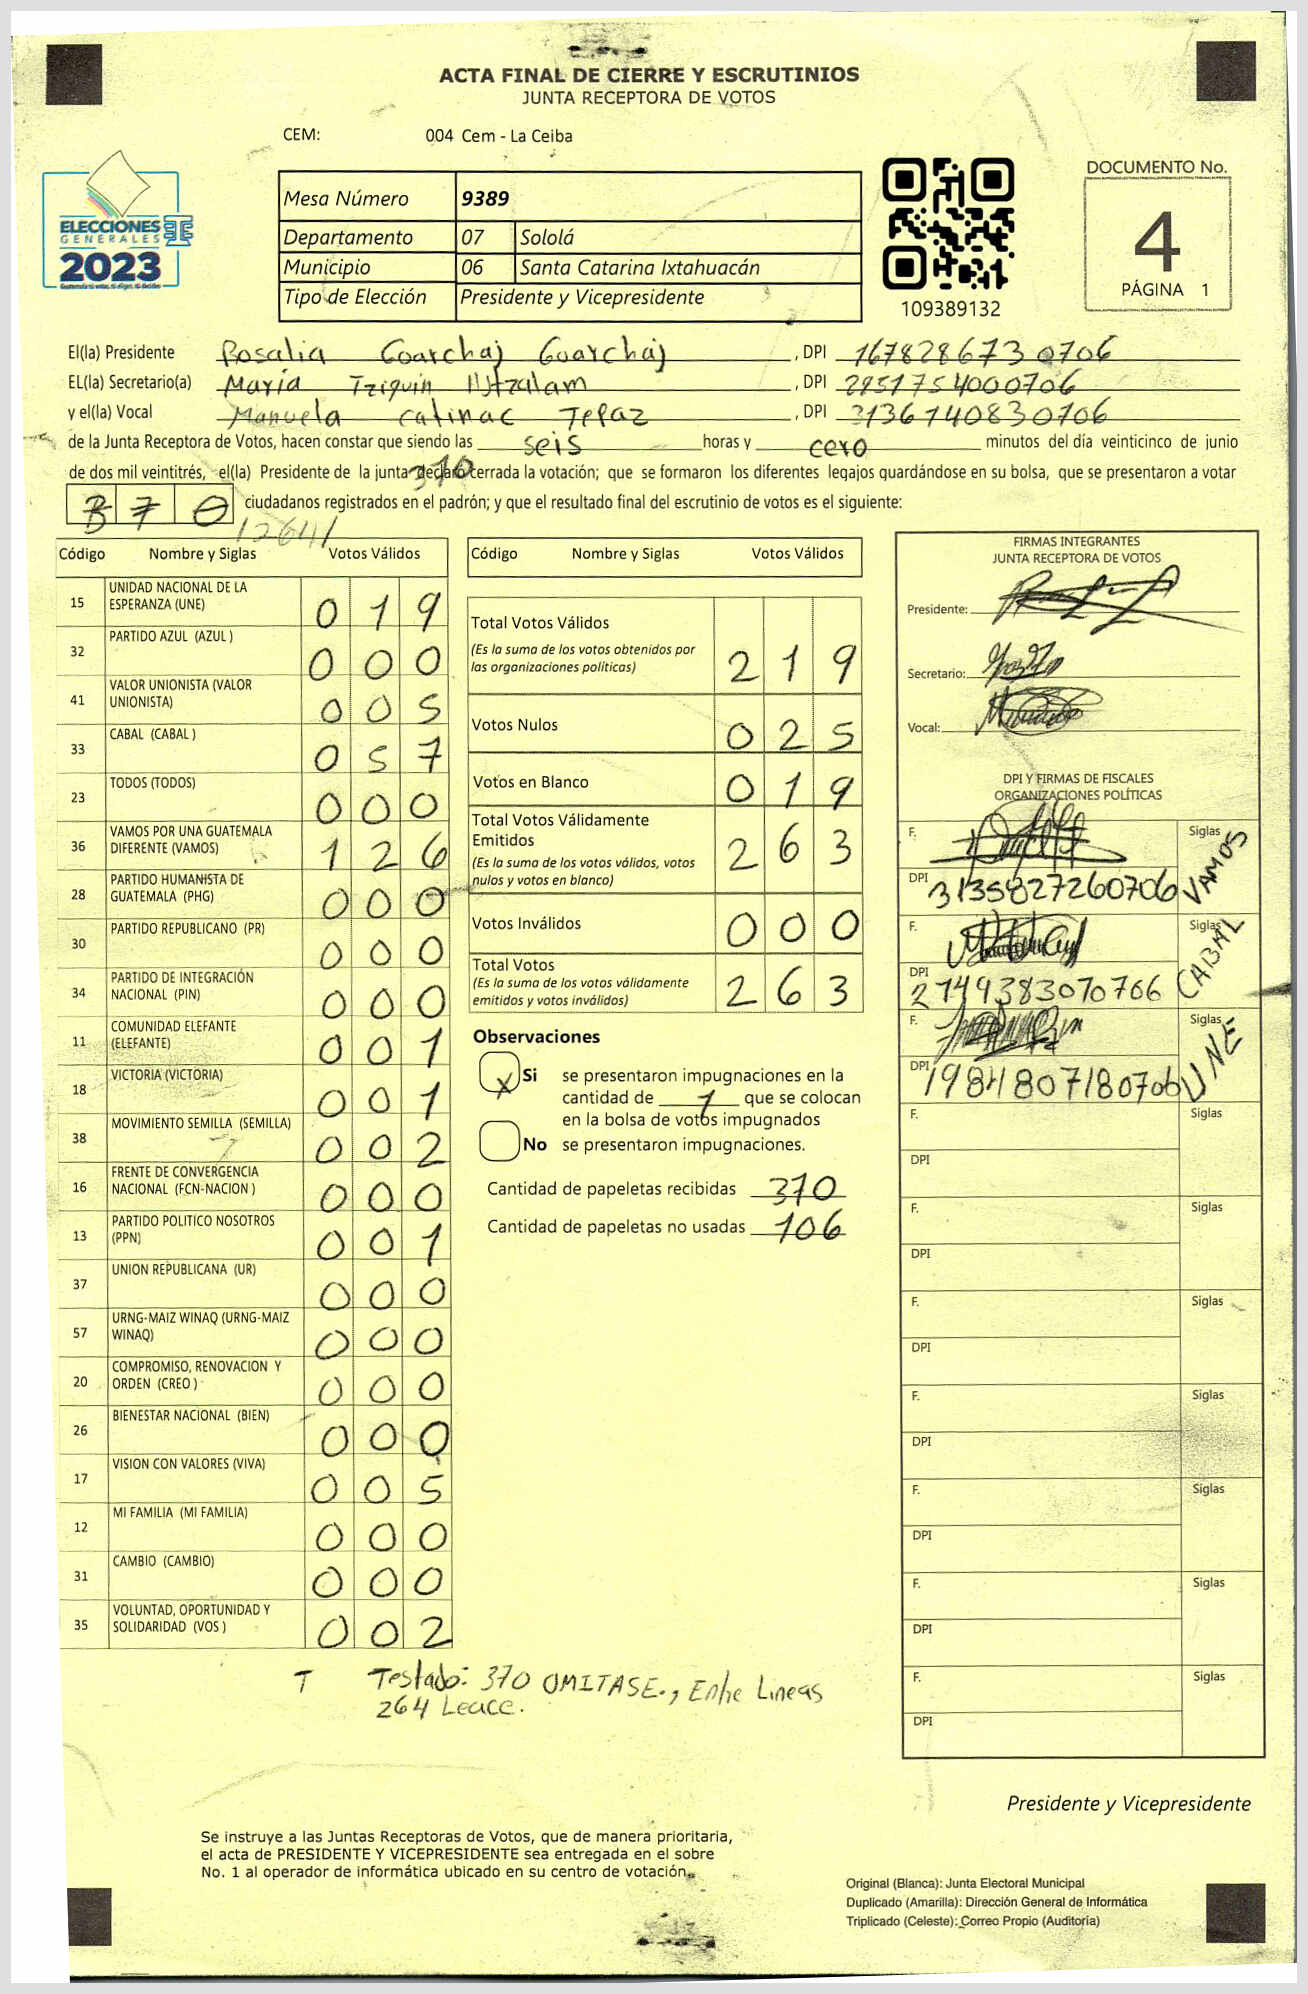 ACTA FINAL DE CIERRE Y ESCRUTINIOS
JUNTA RECEPTORA DE VOTOS
CEM: 004 Cem - La Ceiba
ELECCIONES
GENERALES
2023
Mesa Número 9389
Departamento 07 Sololá
Municipio 06 Santa Catarina Ixtahuacán
Tipo de Elección Presidente y Vicepresidente
109389132
DOCUMENTO No.
4
PÁGINA 1
El(la) Presidente Rosalia Guarchaj Guarchaj, DPI 1678286730706
EL(la) Secretario(a) María Tziquin, DPI 2951754000706
y el(la) Vocal Manuela Catinac Tepaz, DPI 3136140830706
de la Junta Receptora de Votos, hacen constar que siendo las seis horas y cero minutos del día veinticinco de junio
de dos mil veintitrés, el(la) Presidente de la junta declaró cerrada la votación; que se formaron los diferentes legajos quardándose en su bolsa, que se presentaron a votar
370
370 ciudadanos registrados en el padrón; y que el resultado final del escrutinio de votos es el siguiente:
Código Nombre y Siglas Votos Válidos
15 UNIDAD NACIONAL DE LA ESPERANZA (UNE) 019
32 PARTIDO AZUL (AZUL ) 000
41 VALOR UNIONISTA (VALOR UNIONISTA) 005
33 CABAL (CABAL ) 057
23 TODOS (TODOS) 000
36 VAMOS POR UNA GUATEMALA DIFERENTE (VAMOS) 126
28 PARTIDO HUMANISTA DE GUATEMALA (PHG) 000
30 PARTIDO REPUBLICANO (PR) 000
34 PARTIDO DE INTEGRACIÓN NACIONAL (PIN) 000
11 COMUNIDAD ELEFANTE (ELEFANTE) 001
18 VICTORIA (VICTORIA) 001
38 MOVIMIENTO SEMILLA (SEMILLA) 002
16 FRENTE DE CONVERGENCIA NACIONAL (FCN-NACION ) 000
13 PARTIDO POLITICO NOSOTROS (PPN) 001
37 UNION REPUBLICANA (UR) 000
57 URNG-MAIZ WINAQ (URNG-MAIZ WINAQ) 000
20 COMPROMISO, RENOVACION Y ORDEN (CREO ) 000
26 BIENESTAR NACIONAL (BIEN) 000
17 VISION CON VALORES (VIVA) 005
12 MI FAMILIA (MI FAMILIA) 000
31 CAMBIO (CAMBIO) 000
35 VOLUNTAD, OPORTUNIDAD Y SOLIDARIDAD (VOS ) 002
Código Nombre y Siglas Votos Válidos
Total Votos Válidos 219
(Es la suma de los votos obtenidos por
las organizaciones políticas)
Votos Nulos 025
Votos en Blanco 019
Total Votos Válidamente
Emitidos 263
(Es la suma de los votos válidos, votos
nulos y votos en blanco)
Votos Inválidos 000
Total Votos
(Es la suma de los votos válidamente
emitidos y votos inválidos) 263
Observaciones
X Si se presentaron impugnaciones en la
cantidad de 1 que se colocan
en la bolsa de votos impugnados
No se presentaron impugnaciones.
Cantidad de papeletas recibidas 370
Cantidad de papeletas no usadas 106
FIRMAS INTEGRANTES
JUNTA RECEPTORA DE VOTOS
Presidente:
Secretario:
Vocal:
DPI Y FIRMAS DE FISCALES
ORGANIZACIONES POLÍTICAS
F. Siglas VAMOS
DPI 3135827260706
F. Siglas CABAL
DPI 2749383070706
F. Siglas UNE
DPI 1984807180706
F. Siglas
DPI
F. Siglas
DPI
F. Siglas
DPI
F. Siglas
DPI
F. Siglas
DPI
F. Siglas
DPI
F. Siglas
DPI
T Testado: 370 OMITASE., Entre Lineas
264 Leace.
Presidente y Vicepresidente
Se instruye a las Juntas Receptoras de Votos, que de manera prioritaria,
el acta de PRESIDENTE Y VICEPRESIDENTE sea entregada en el sobre
No. 1 al operador de informática ubicado en su centro de votación.
Original (Blanca): Junta Electoral Municipal
Duplicado (Amarilla): Dirección General de Informática
Triplicado (Celeste): Correo Propio (Auditoría)